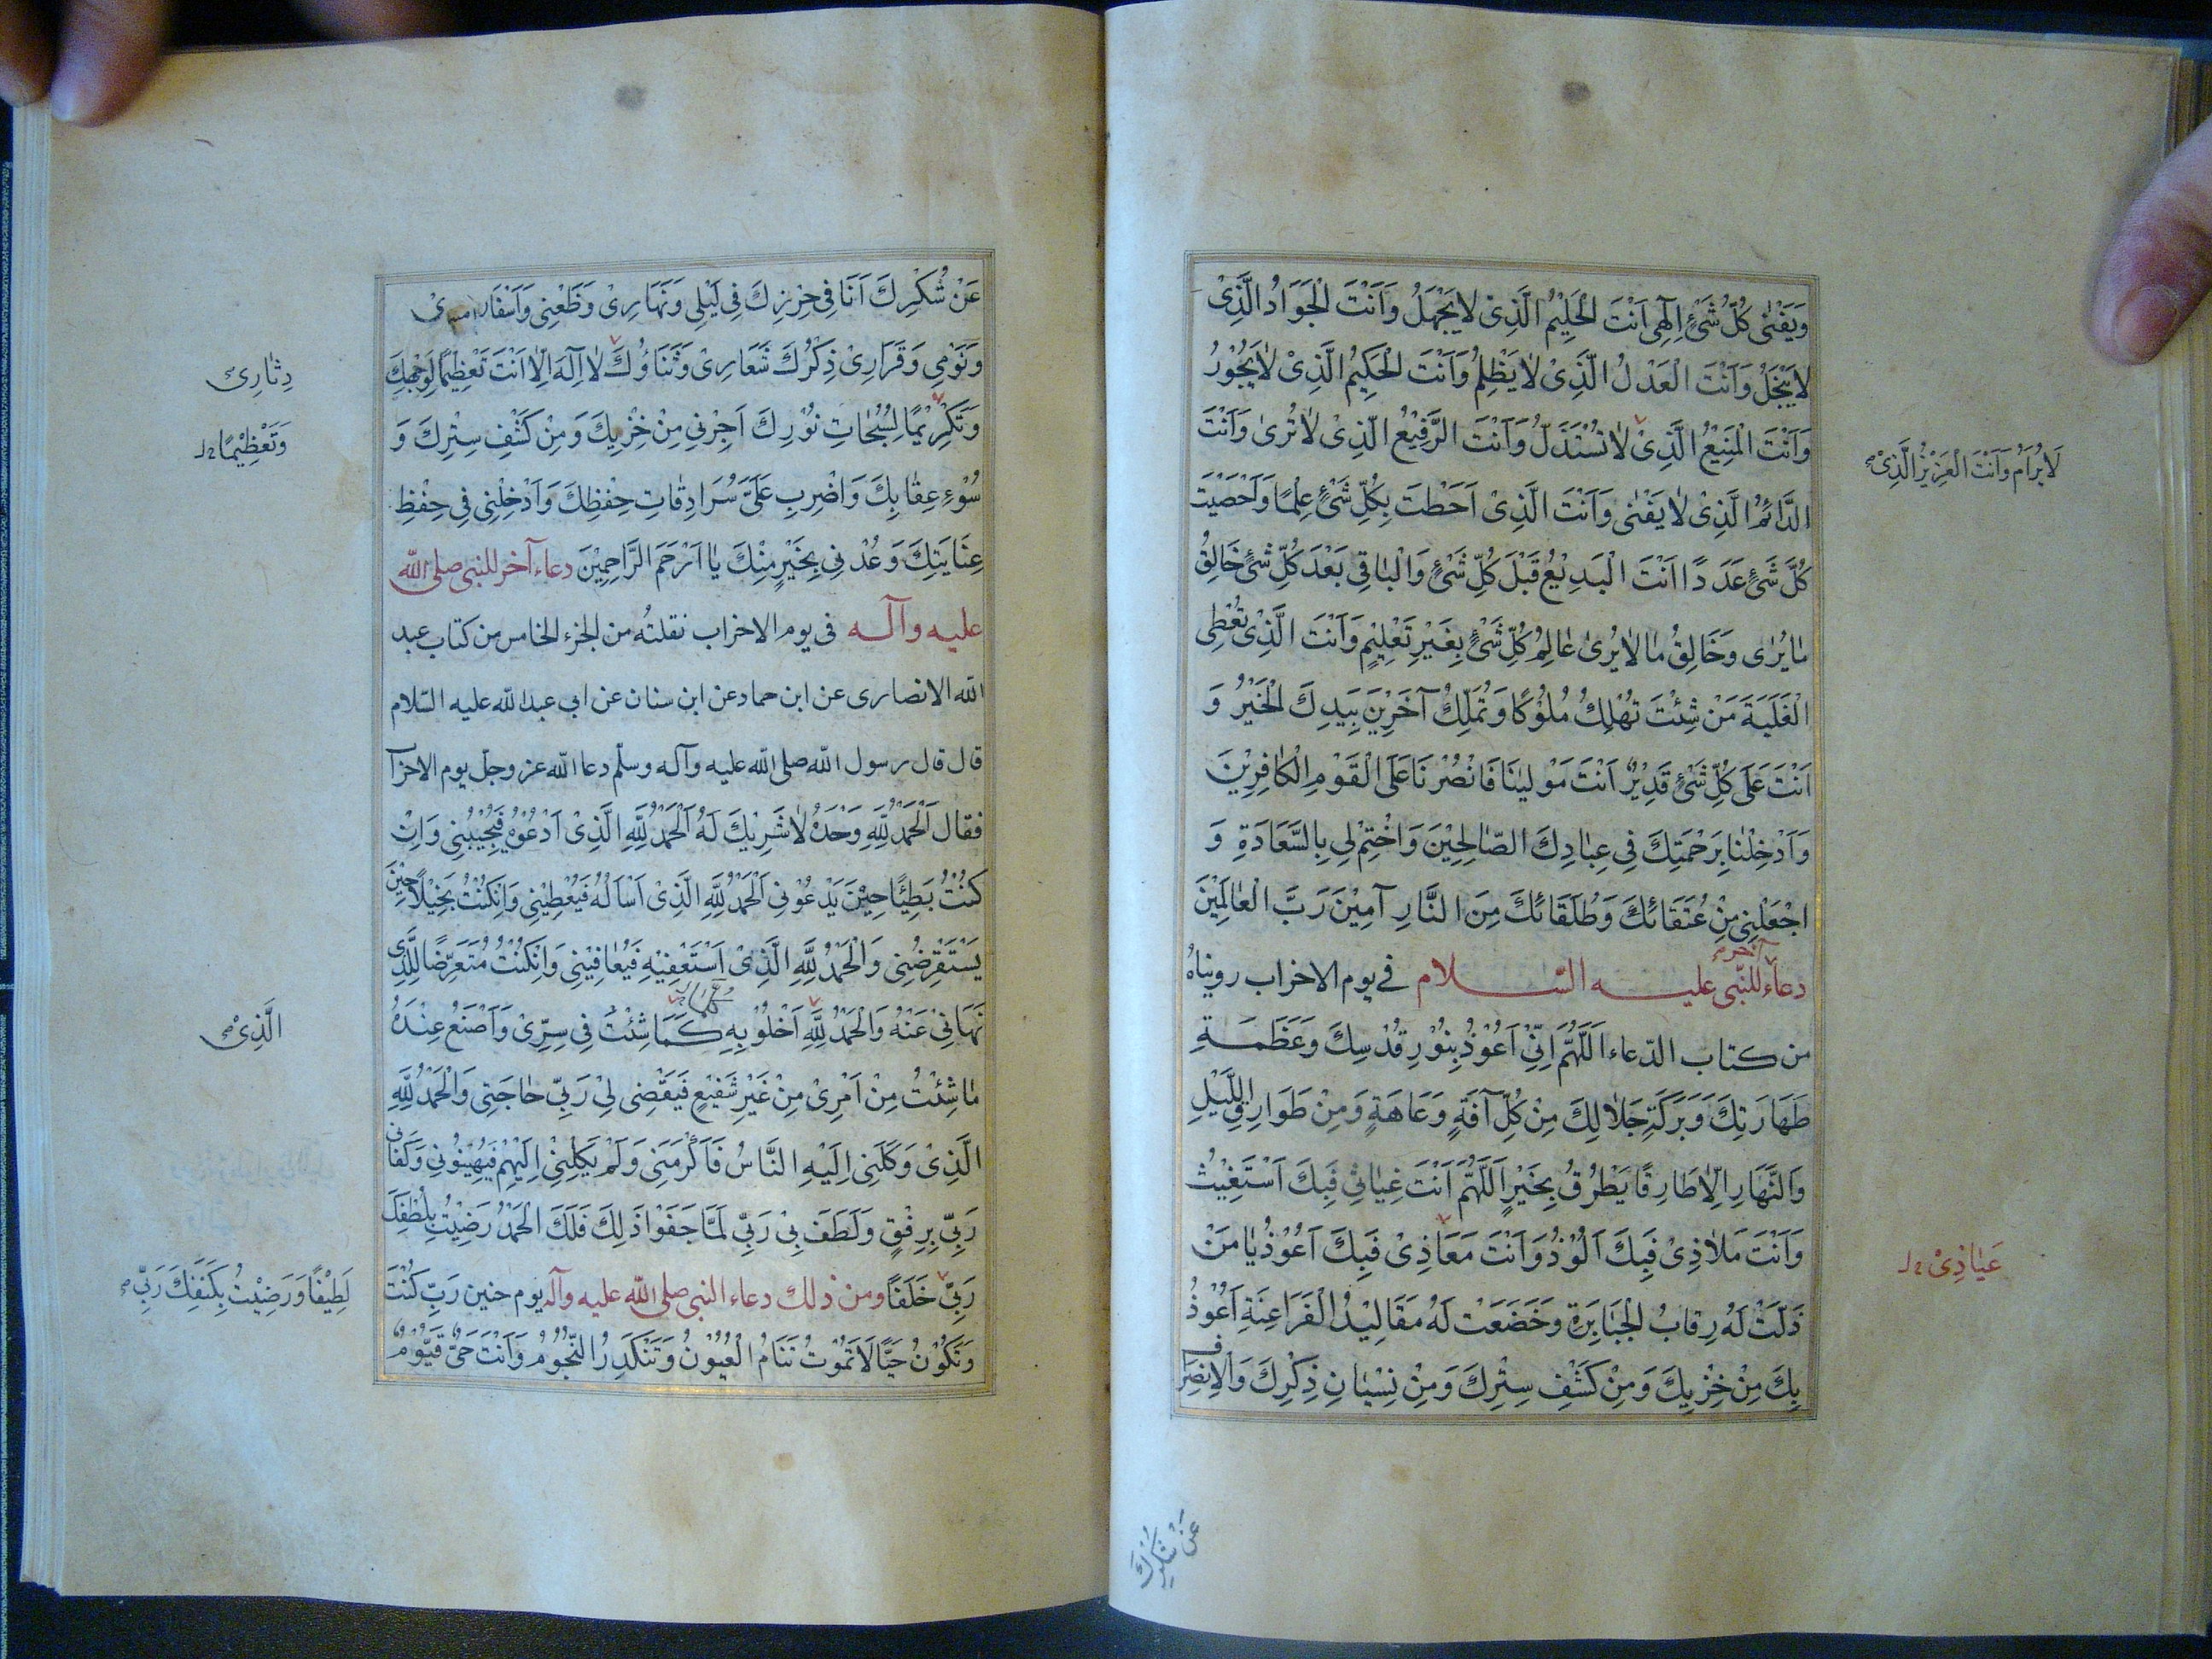 وَيَفْنىٰ كُلُّ شَيْءٍ اِلٰهِي اَنْتَ الْحَلِيْمُ الَّذِيْ لايَجْهَلُ وَاَنْتَ الْجَوَادُ الَّذِيْ
لايَبْخَلُ وَاَنْتَ الْعَدْلُ الَّذِيْ لايَظْلِمُ وَاَنْتَ الْحَكِيْمُ الَّذِيْ لايَجُوْرُ
وَاَنْتَ الْمَنِيْعُ الَّذِيْ لاتُسْتَذَلُّ وَاَنْتَ الرَّفِيْعُ الَّذِيْ لاتُرىٰ وَاَنْتَ
لَايُرَامُ وَاَنْتَ الْعَزِيْزُ الَّذِيْ
الدَّائِمُ الَّذِيْ لايَفْنىٰ وَاَنْتَ الَّذِيْ اَحَطْتَ بِكُلِّ شَيْءٍ عِلْمًا وَاَحْصَيْتَ
كُلَّ شَيْءٍ عَدَدًا اَنْتَ الْبَدِيْعُ قَبْلَ كُلِّ شَيْءٍ وَالْبَاقِي بَعْدَ كُلِّ شَيْءٍ خَالِقُ
مَايُرَى وَخَالِقُ مَالايُرىٰ عَالِمُ كُلِّ شَيْءٍ بِغَيْرِ تَعْلِيْمٍ وَاَنْتَ الَّذِيْ تُعْطِي
الْغَلَبَةَ مَنْ شِئْتَ تُهْلِكُ مُلُوْكًا وَتُمَلِّكُ آخَرِيْنَ بِيَدِكَ الْخَيْرُ وَ
اَنْتَ عَلَى كُلِّ شَيْءٍ قَدِيْرٌ اَنْتَ مَوْلَيٰنَا فَانْصُرْنَا عَلَى الْقَوْمِ الْكَافِرِيْنَ
وَاَدْخِلْنَا بِرَحْمَتِكَ فِي عِبَادِكَ الصَّالِحِيْنَ وَاخْتِمْ لِي بِالسَّعَادَةِ وَ
اجْعَلْنِي مِنْ عُتَقَائِكَ وَطُلَقَائِكَ مِنَ النَّارِ آمِيْنَ رَبَّ الْعَالَمِيْنَ
آخر
دعاء للنّبي عليه السّلام في يوم الاحزاب رويناهُ
من كتاب الدّعاء اَللّٰهُمَّ اِنِّيْ اَعُوْذُ بِنُوْرِ قُدْسِكَ وَعَظَمَةِ
طَهَارَتِكَ وَبَرَكَةِ جَلالِكَ مِنْ كُلِّ آفَةٍ وَعَاهَةٍ وَمِنْ طَوَارِقِ اللَّيْلِ
وَالنَّهَارِ اِلّاطَارِقًا يَطْرُقُ بِخَيْرٍ اَللّٰهُمَّ اَنْتَ غِيَاثِي فَبِكَ اَسْتَغِيْثُ
وَاَنْتَ مَلاذِيْ فَبِكَ اَلُوْذُ وَاَنْتَ مَعَاذِيْ فَبِكَ اَعُوْذُ يَا مَنْ
عَيَاذِيْ
ذَلَّتْ لَهُ رِقَابُ الْجَبَابِرَةِ وَخَضَعَتْ لَهُ مَقَالِيْدُ الْفَرَاعِنَةِ اَعُوْذُ
بِكَ مِنْ خِزْيِكَ وَمِنْ كَشْفِ سِتْرِكَ وَمِنْ نِسْيَانِ ذِكْرِكَ وَالاِنْصِرَاف
عَنْ شُكْرِكَ
عَنْ شُكْرِكَ اَنَا فِي حِرْزِكَ فِي لَيْلِي وَنَهَارِيْ وَظَعْنِي وَاَسْفَارِيْ
وَنَوْمِي وَقَرَارِيْ ذِكْرُكَ شِعَارِيْ وَثَنَاؤُكَ لااِلٰهَ اِلّااَنْتَ تَعْظِيْمًا لِوَجْهِكَ
دِثَارِيْ
وَتَكْرِيْمًا لِسُبُحَاتِ نُوْرِكَ اَجِرْنِي مِنْ خِزْيِكَ وَمِنْ كَشْفِ سِتْرِكَ وَ
وَتَعْظِيْمًا
سُوْءِ عِقَابِكَ وَاضْرِبْ عَلَيَّ سُرَادِقَاتِ حِفْظِكَ وَاَدْخِلْنِي فِي حِفْظِ
عِنَايَتِكَ وَعُدْنِي بِخَيْرٍ مِنْكَ يَا اَرْحَمَ الرَّاحِمِيْنَ دعاء آخر للنبي صلى الله
عليه وآله في يوم الاحزاب نقلتُه من الجزء الخامس من كتاب عبد
الله الانصارى عن ابن حماد عن ابن سنان عن ابي عبد الله عليه السّلام
قال قال رسول الله صلى الله عليه وآله وسلّم دعا الله عز وجل يوم الاحزا
فقال اَلْحَمْدُ لِلّٰهِ وَحْدَهُ لاشَرِيْكَ لَهُ اَلْحَمْدُ لِلّٰهِ الَّذِيْ اَدْعُوْهُ فَيُجِيْبُنِي وَاِنْ
كُنْتُ بَطِيْئًا حِيْنَ يَدْعُوْنِي اَلْحَمْدُ لِلّٰهِ الَّذِيْ اَسْاَلُهُ فَيُعْطِيْنِي وَاِنْكُنْتُ بَخِيْلًا حِيْنَ
يَسْتَقْرِضُنِي وَالْحَمْدُ لِلّٰهِ الَّذِيْ اَسْتَعْفِيْهِ فَيُعَافِيْنِي وَاِنْكُنْتُ مُتَعَرِّضًا لِلَّذِي
نَهَانِيْ عَنْهُ وَالْحَمْدُ لِلّٰهِ اَخْلُوْ بِهِ كَمَا شِئْتُ فِي سِرِّيْ وَاَصْنَعُ عِنْدَهُ
كُلَّمَا
الَّذِيْ
مَاشِئْتُ مِنْ اَمْرِيْ مِنْ غَيْرِ شَفِيْعٍ فَيَقْضِي لِيْ رَبِّي حَاجَتِي وَالْحَمْدُ لِلّٰهِ
الَّذِيْ وَكَّلَنِي اِلَيْهِ النَّاسُ فَاَكْرَمَنِي وَلَمْ يَكِلْنِيْ اِلَيْهِمْ فَيُهِيْنُوْنِي وَكَفَانِي
رَبِّي بِرِفْقٍ وَلَطَفَ بِيْ رَبِّي لَمَّا جَفَوْا ذَلِكَ فَلَكَ الْحَمْدُ رَضِيْتُ بِلُطْفِكَ
رَبِّي خَلَفًا ومن ذلك دعاء النبي صلى الله عليه وآله يوم حنين رَبِّ كُنْتَ
لَطِيْفًا وَرَضِيْتُ بِكَنَفِكَ رَبِّي
وَتَكُوْنُ حَيًّا لَاتَمُوْتُ تَنَامُ الْعُيُوْنُ وَتَنْكَدِرُ النُّجُوْمُ وَاَنْتَ حَيٌّ قَيُّوْمٌ